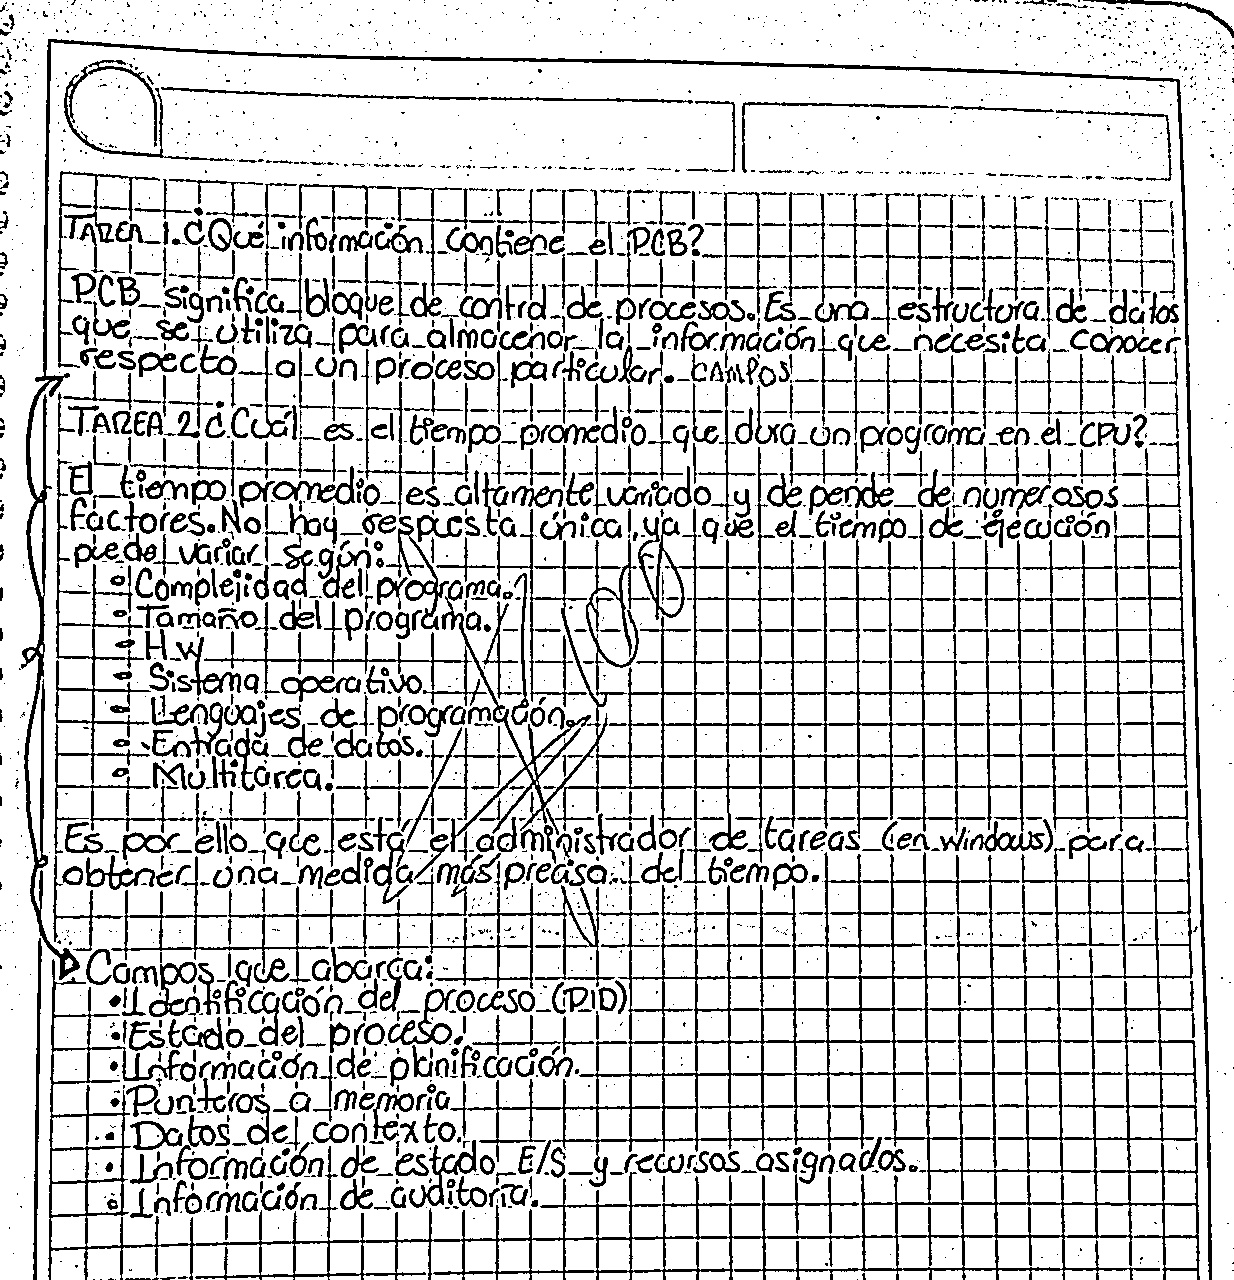 TAREA 1. ¿Qué información contiene el PCB?
PCB significa bloque de control de procesos. Es una estructura de datos
que se utiliza para almacenar la información que necesita conocer
respecto a un proceso particular. CAMPOS
TAREA 2. ¿Cuál es el tiempo promedio que dura un programa en el CPU?
El tiempo promedio es altamente variado y depende de numerosos
factores. No hay respuesta única, ya que el tiempo de ejecución
puede variar según:
• Complejidad del programa.
• Tamaño del programa.
• HW
• Sistema operativo.
• Lenguajes de programación.
• Entrada de datos.
• Multitarea.
100
Es por ello que está el administrador de tareas (en windows) para
obtener una medida más precisa del tiempo.
Campos que abarca:
• Identificación del proceso (PID)
• Estado del proceso.
• Información de planificación.
• Punteros a memoria
• Datos del contexto.
• Información de estado E/S y recursos asignados.
• Información de auditoría.